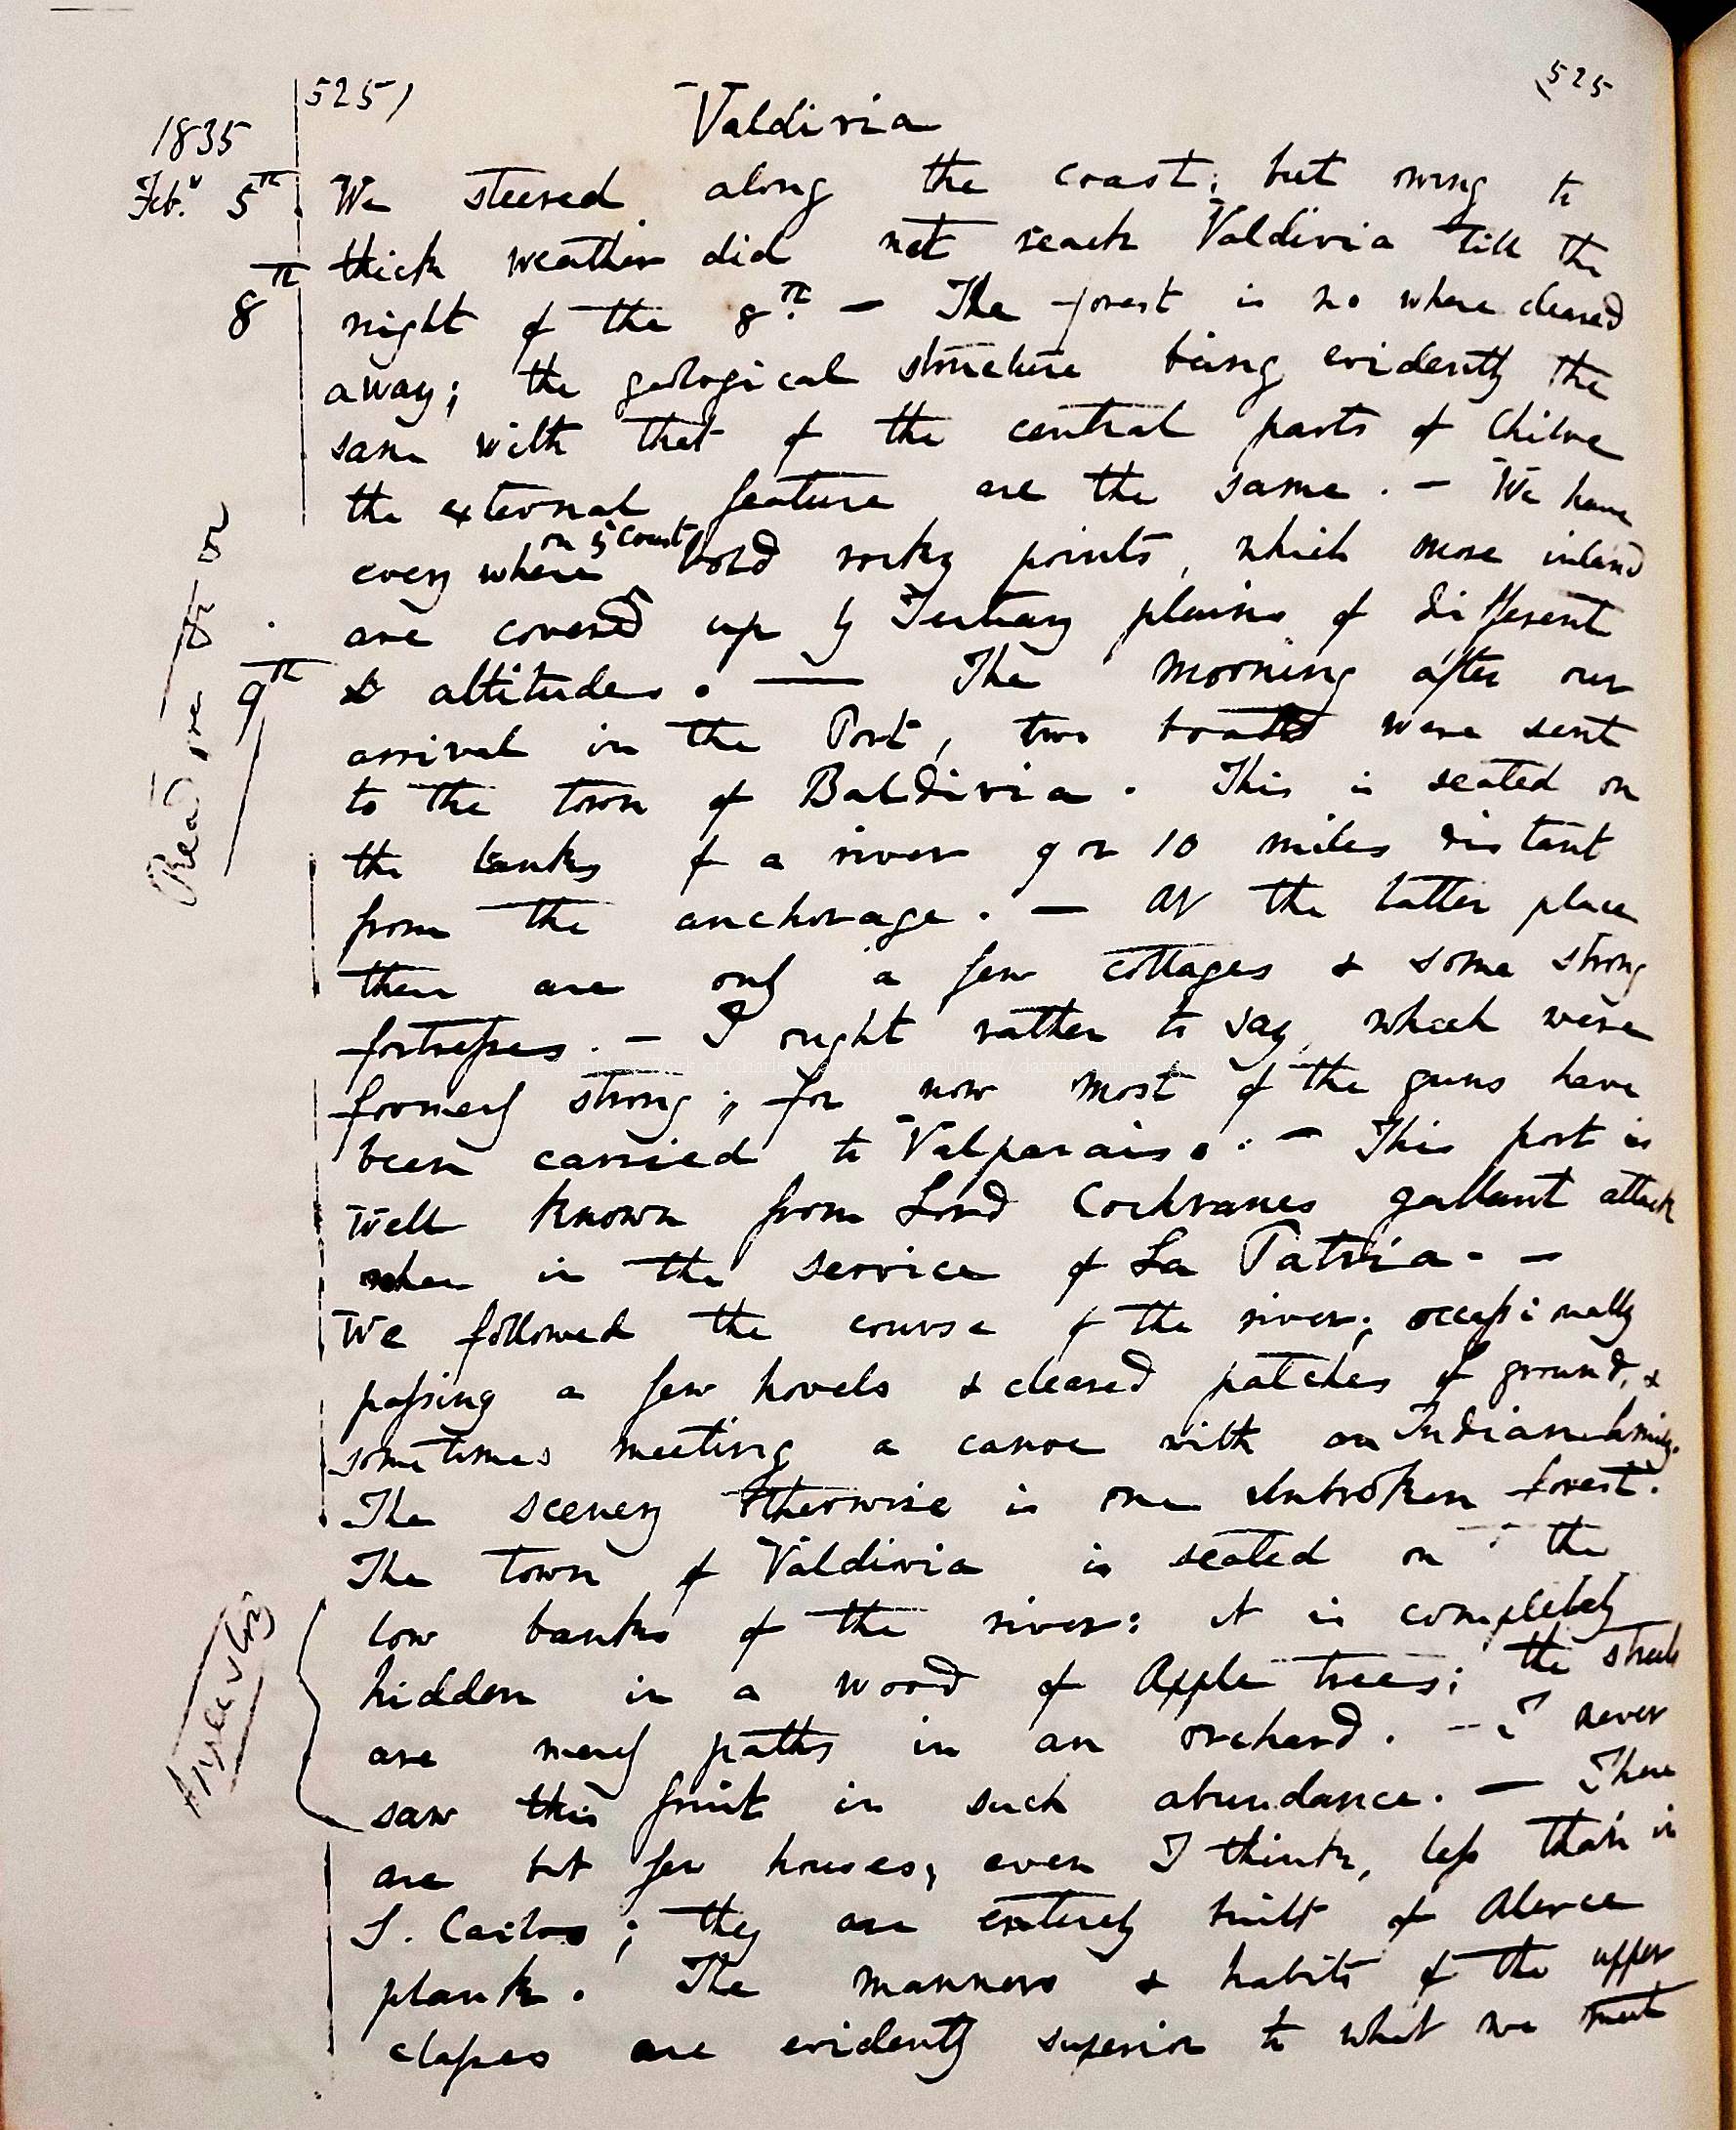 525)
525
Valdivia
1835
Feb.y 5th
We steered along the coast; but owing to
thick weather did not reach Valdivia till the
8th
night of the 8th. — The forest is no where cleared
away; the geological structure being evidently the
same with that of the central parts of Chiloe
the external feature are the same. — We have
on ye coast
every where bold rocky points, which more inland
are covered up by Tertiary plains of different
9th
altitudes. — The morning after our
arrival in the Port, two boats were sent
to the town of Baldivia. This is seated on
the banks of a river 9 or 10 miles distant
from the anchorage. — At the latter place
there are only a few cottages & some strong
fortresses. — I ought rather to say, which were
formerly strong; for now most of the guns have
been carried to Valparaiso. — This port is
well known from Lord Cochranes gallant attack
when in the service of La Patria. —
We followed the course of the river; occassionally
passing a few hovels & cleared patches of ground, &
sometimes meeting a canoe with an Indian family.
The scenery otherwise is one unbroken forest.
The town of Valdivia is seated on the
low banks of the river: it is completely
hidden in a wood of Apple trees; the streets
are merely paths in an orchard. — I never
saw this fruit in such abundance. — There
are but few houses, even I think, less than in
S. Carlos; they are entirely built of Alerce
plank. The manners & habits of the upper
classes are evidently superior to what we meet
Read